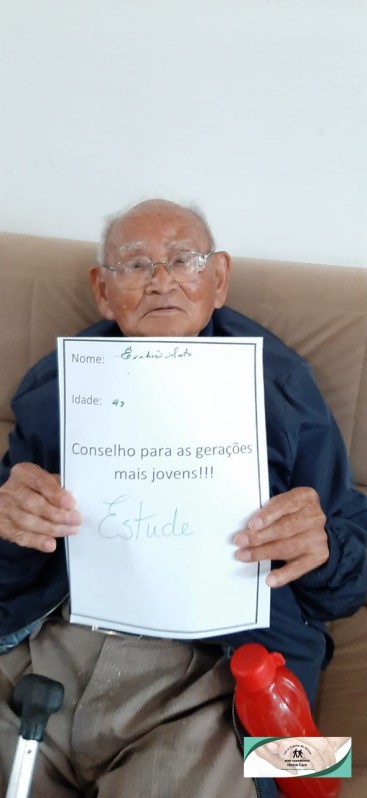 Nome:
Idade: 97
Conselho para as gerações
mais jovens!!!
Estude
Home Care